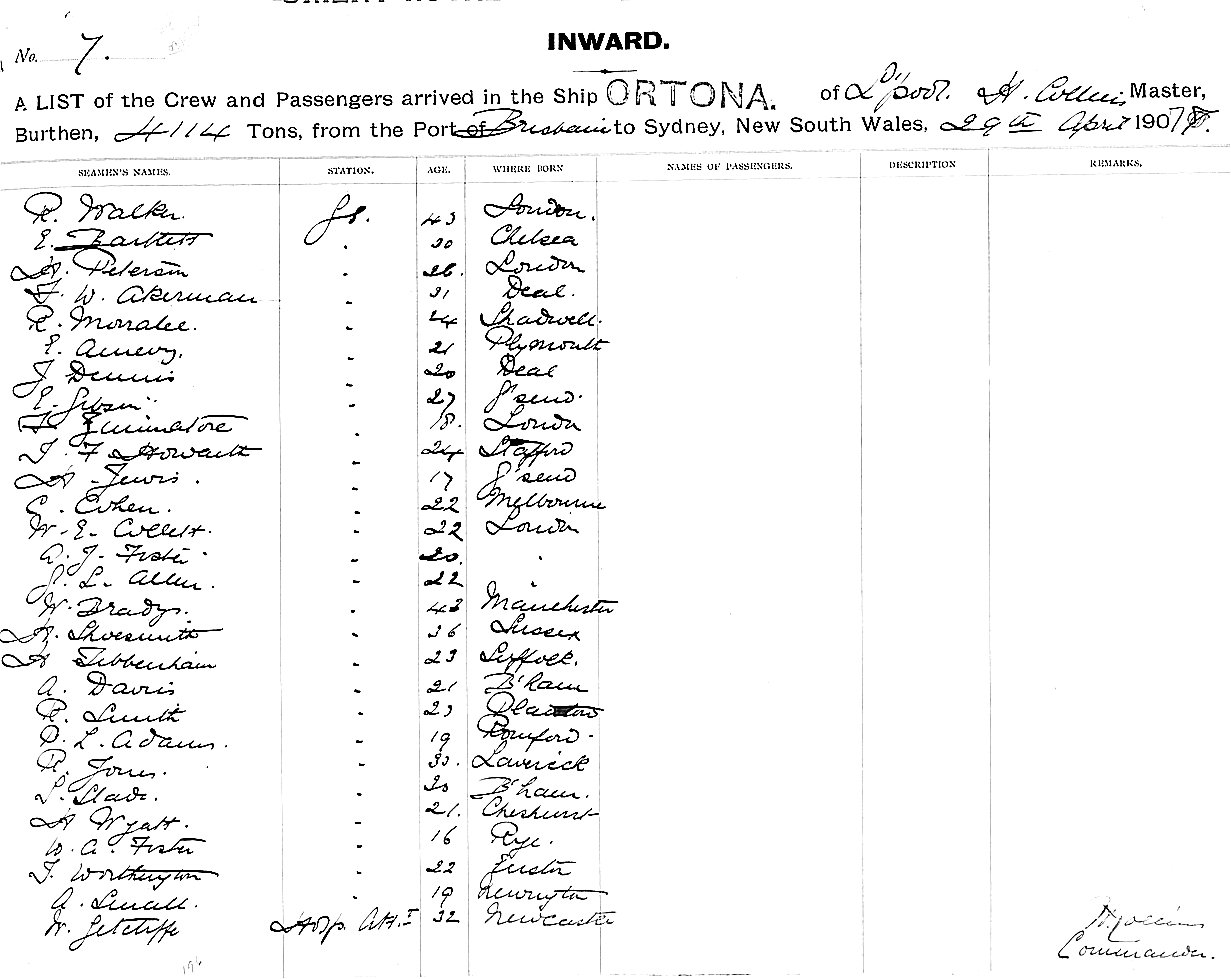 No. 7.
INWARD.
A LIST of the Crew and Passengers arrived in the Ship ORTONA. of L'pool. H. Collins Master,
Burthen, 4114 Tons, from the Port of Brisbane to Sydney, New South Wales, 29th April 1907
SEAMEN'S NAMES. STATION. AGE. WHERE BORN NAMES OF PASSENGERS. DESCRIPTION REMARKS.
R. Walker. 43 London.
E. Bartlett " 30 Chelsea
H. Peterson " 26. London
F. W. Akerman " 31 Deal.
R. Morralee. " 44 Shadwell.
E. " 21 Plymouth
J. Dennis " 20 Deal
E. Gibson " 27 G'send.
18. London
J. F Howarth " 24 Stafford
H. " 17 G'send
C. Cohen. " 22 Melbourne
W. E. Collett. " 22 London
A. J. Foster " 20. "
G. L. Allen. " 22 "
W. Bradys. " 43 Manchester
H. Shoesmith " 36 Sussex
H Tibbenham " 23 Suffolk.
A. Davis " 21 B'ham
R. Smith " 23
P. L. Adams. " 19 Romford.
R. Jones. " 33. Laverick
S. Slade. " 20 B'ham.
H Wyatt. " 21. Cheshurst
W. A. Foster " 16 Rye.
J. Worthington " 22
A. Small. " 19 Newington
W. Jetcliffe Hosp. Att. 32 Newcastle
H. Collins
Commander.